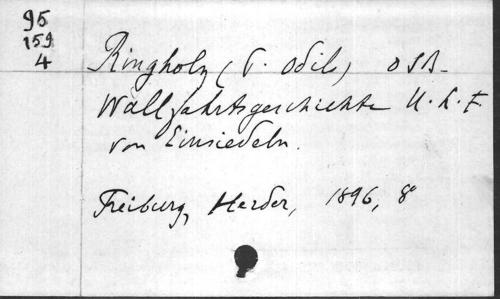 95
159
4
Ringholz (P. Odilo) OSB.
Wallfahrtsgeschichte U. L. F.
von Einsiedeln.
Freiburg, Herder, 1896, 8°